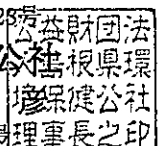 号
公益財団法
公社
人島根県環
境保健公社
理事長之印